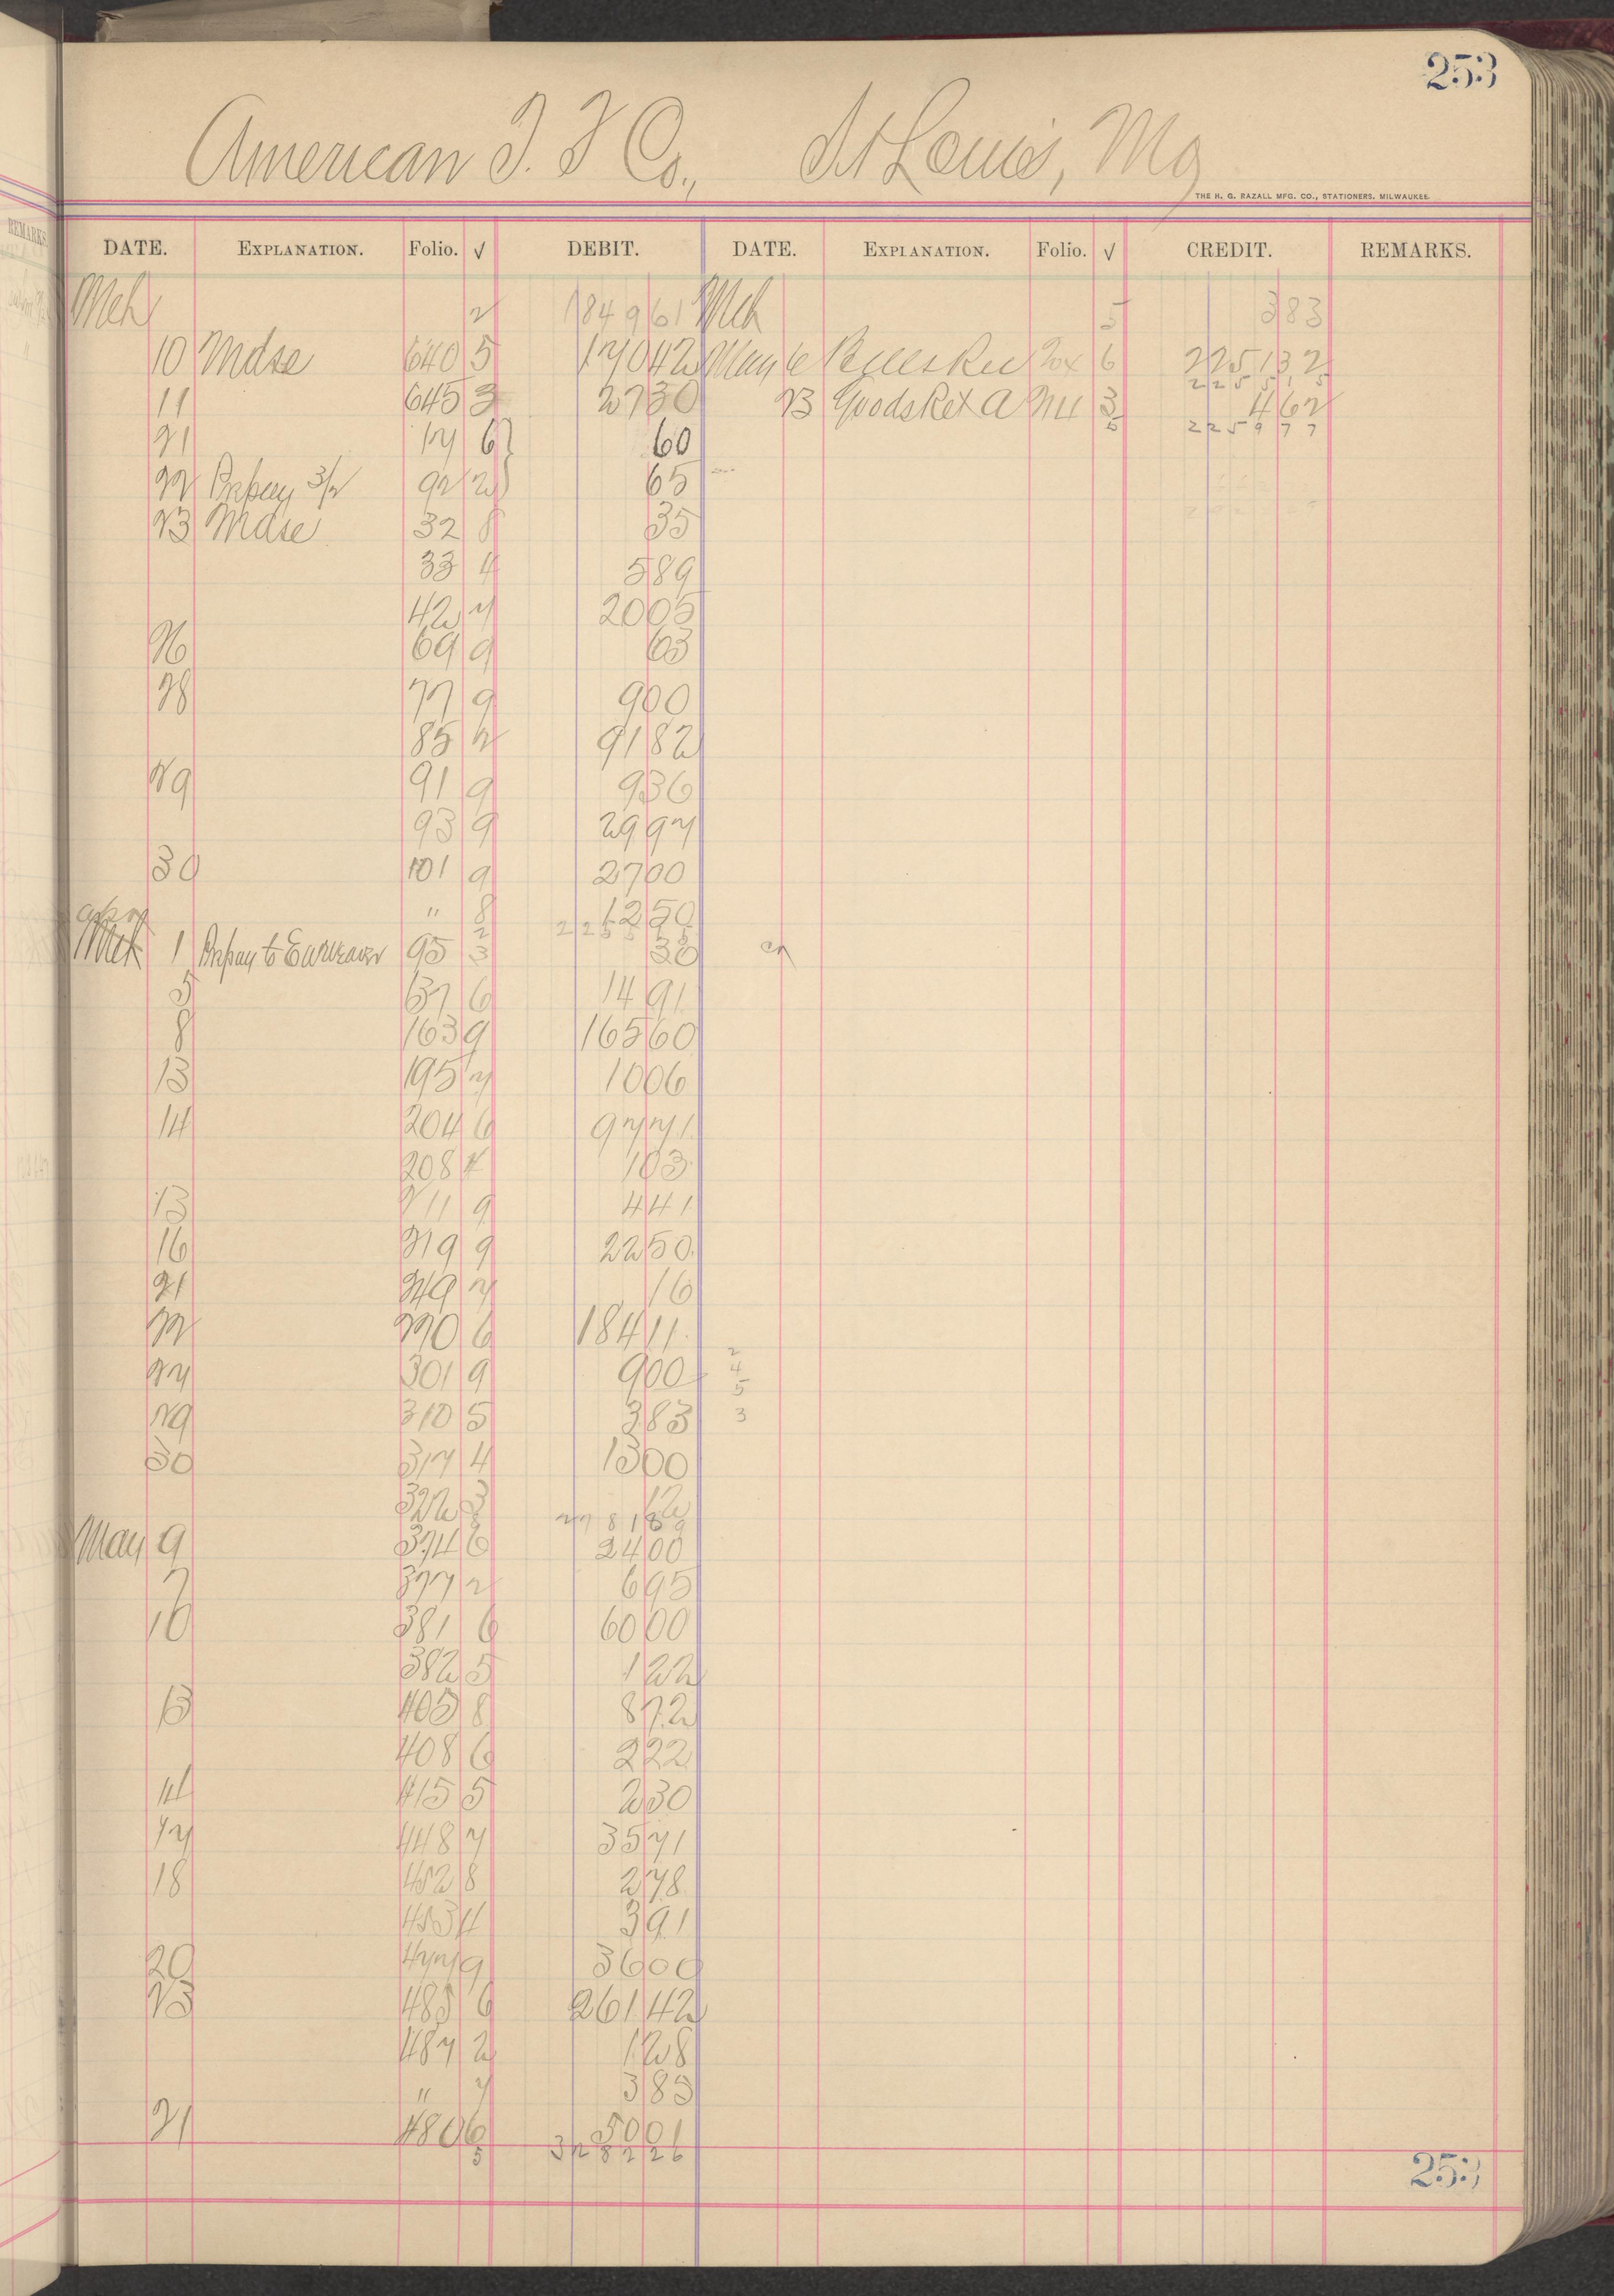 253
American T. F Co., St Louis, Mo
THE H. G. RAZALL MFG. CO., STATIONERS, MILWAUKEE.
REMARKS.
DATE. EXPLANATION. Folio. √ DEBIT. DATE. EXPLANATION. Folio. √ CREDIT. REMARKS.
Mch 2 184961 Mch 5 383
10 Mdse 640 5 17042 May 6 6 225132
225515
11 645 3 2730 23 Goods Ret 3 462
5 225977
21 17 6 60
22 Prepay 3/2 92 2 65
23 Mdse 32 8 35
33 4 589
42 7 2005
26 69 9 63
28 77 9 900
85 2 9182
29 91 9 936
93 9 2997
30 101 9 2700
Apr " 8 1250
2 225515
Mch 1 Prepay to 95 3 30
5 137 6 1491
8 163 9 16560
13 195 7 1006
14 204 6 9771
208 4 103
13 211 9 441
16 219 9 2250
21 249 7 16
22 290 6 18411
2
27 301 9 900 4
5
29 310 5 383 3
30 317 4 1300
322 3 12
278189
May 9 374 6 2400
7 377 2 695
10 381 6 6000
382 5 122
13 405 8 872
408 6 222
14 415 5 230
17 448 7 3571
18 452 8 278
453 4 391
20 477 9 3600
23 485 6 26142
487 2 128
" 7 385
21 480 6 5001
5 328226
253